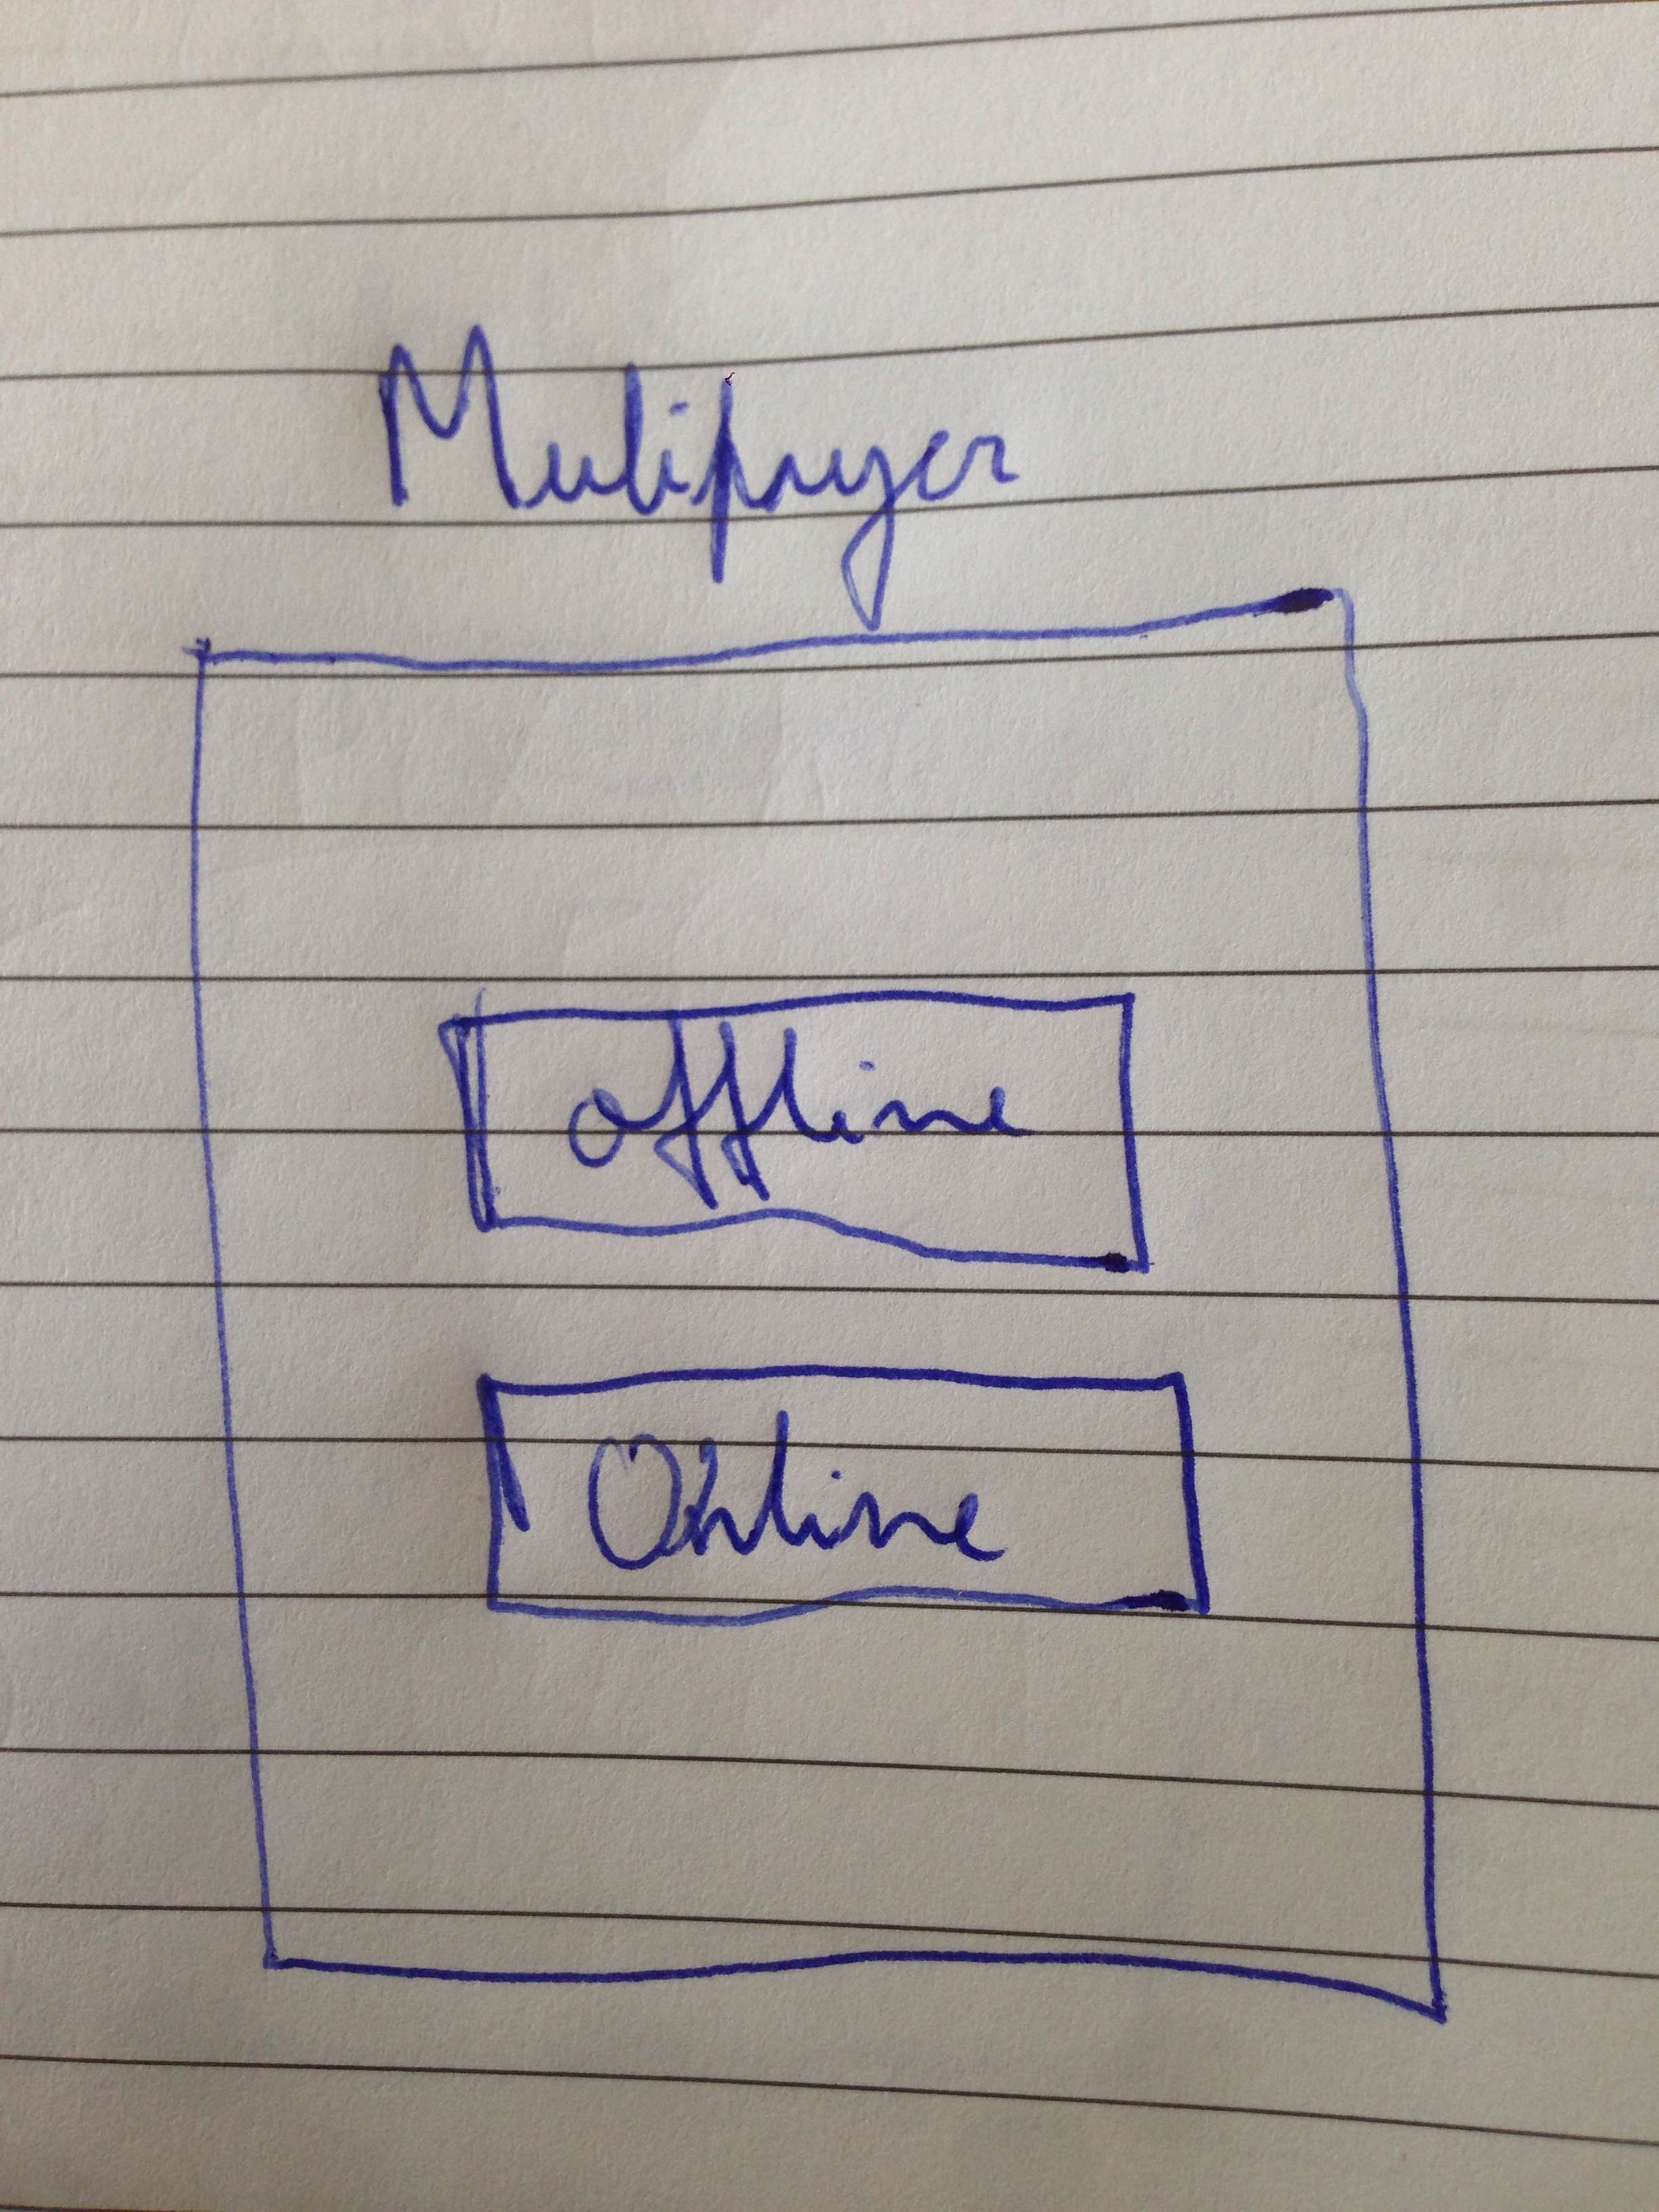 Mulipayer
offline
Online